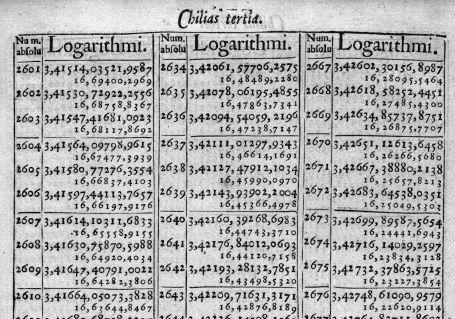 Chilias tertia.
Num. absolu
Logarithmi.
2601 3,41514,03521,9587
16,69400,2969
2602 3,41530,72922,2556
16,68758,8367
2603 3,41547,41681,0923
16,68117,8692
2604 3,41564,09798,9615
16,67477,3939
2605 3,41580,77276,3554
16,66837,4103
2606 3,41597,44113,7657
16,66197,9176
2607 3,41614,10311,6833
16,65558,9155
2608 3,41630,75870,5988
16,64920,4034
2609 3,41647,40791,0022
16,64282,3806
2610 3,41664,05073,3828
16,63644,8467
Num. absolu
Logarithmi.
2634 3,42061,57706,2575
16,48489,2280
2635 3,42078,06195,4855
16,47863,7341
2636 3,42094,54059,2196
16,47238,7147
2637 3,42111,01297,9343
16,46614,1691
2638 3,42127,47912,1034
16,45990,0970
2639 3,42143,93902,2004
16,45366,4978
2640 3,42160,39268,6983
16,44743,3710
2641 3,42176,84012,0693
16,44120,7158
2642 3,42193,28132,7851
16,43498,5320
2643 3,42209,71631,3171
16,42876,8189
Num. absolu
Logarithmi.
2667 3,42602,30156,8987
16,28095,5464
2668 3,42618,58252,4451
16,27485,4300
2669 3,42634,85737,8751
16,26875,7707
2670 3,42651,12613,6458
16,26266,5680
2671 3,42667,38880,2138
16,25657,8213
2672 3,42683,64538,0351
16,25049,5303
2673 3,42699,89587,5654
16,24441,6943
2674 3,42716,14029,2597
16,23834,3128
2675 3,42732,37863,5725
16,23227,3854
2676 3,42748,61090,9579